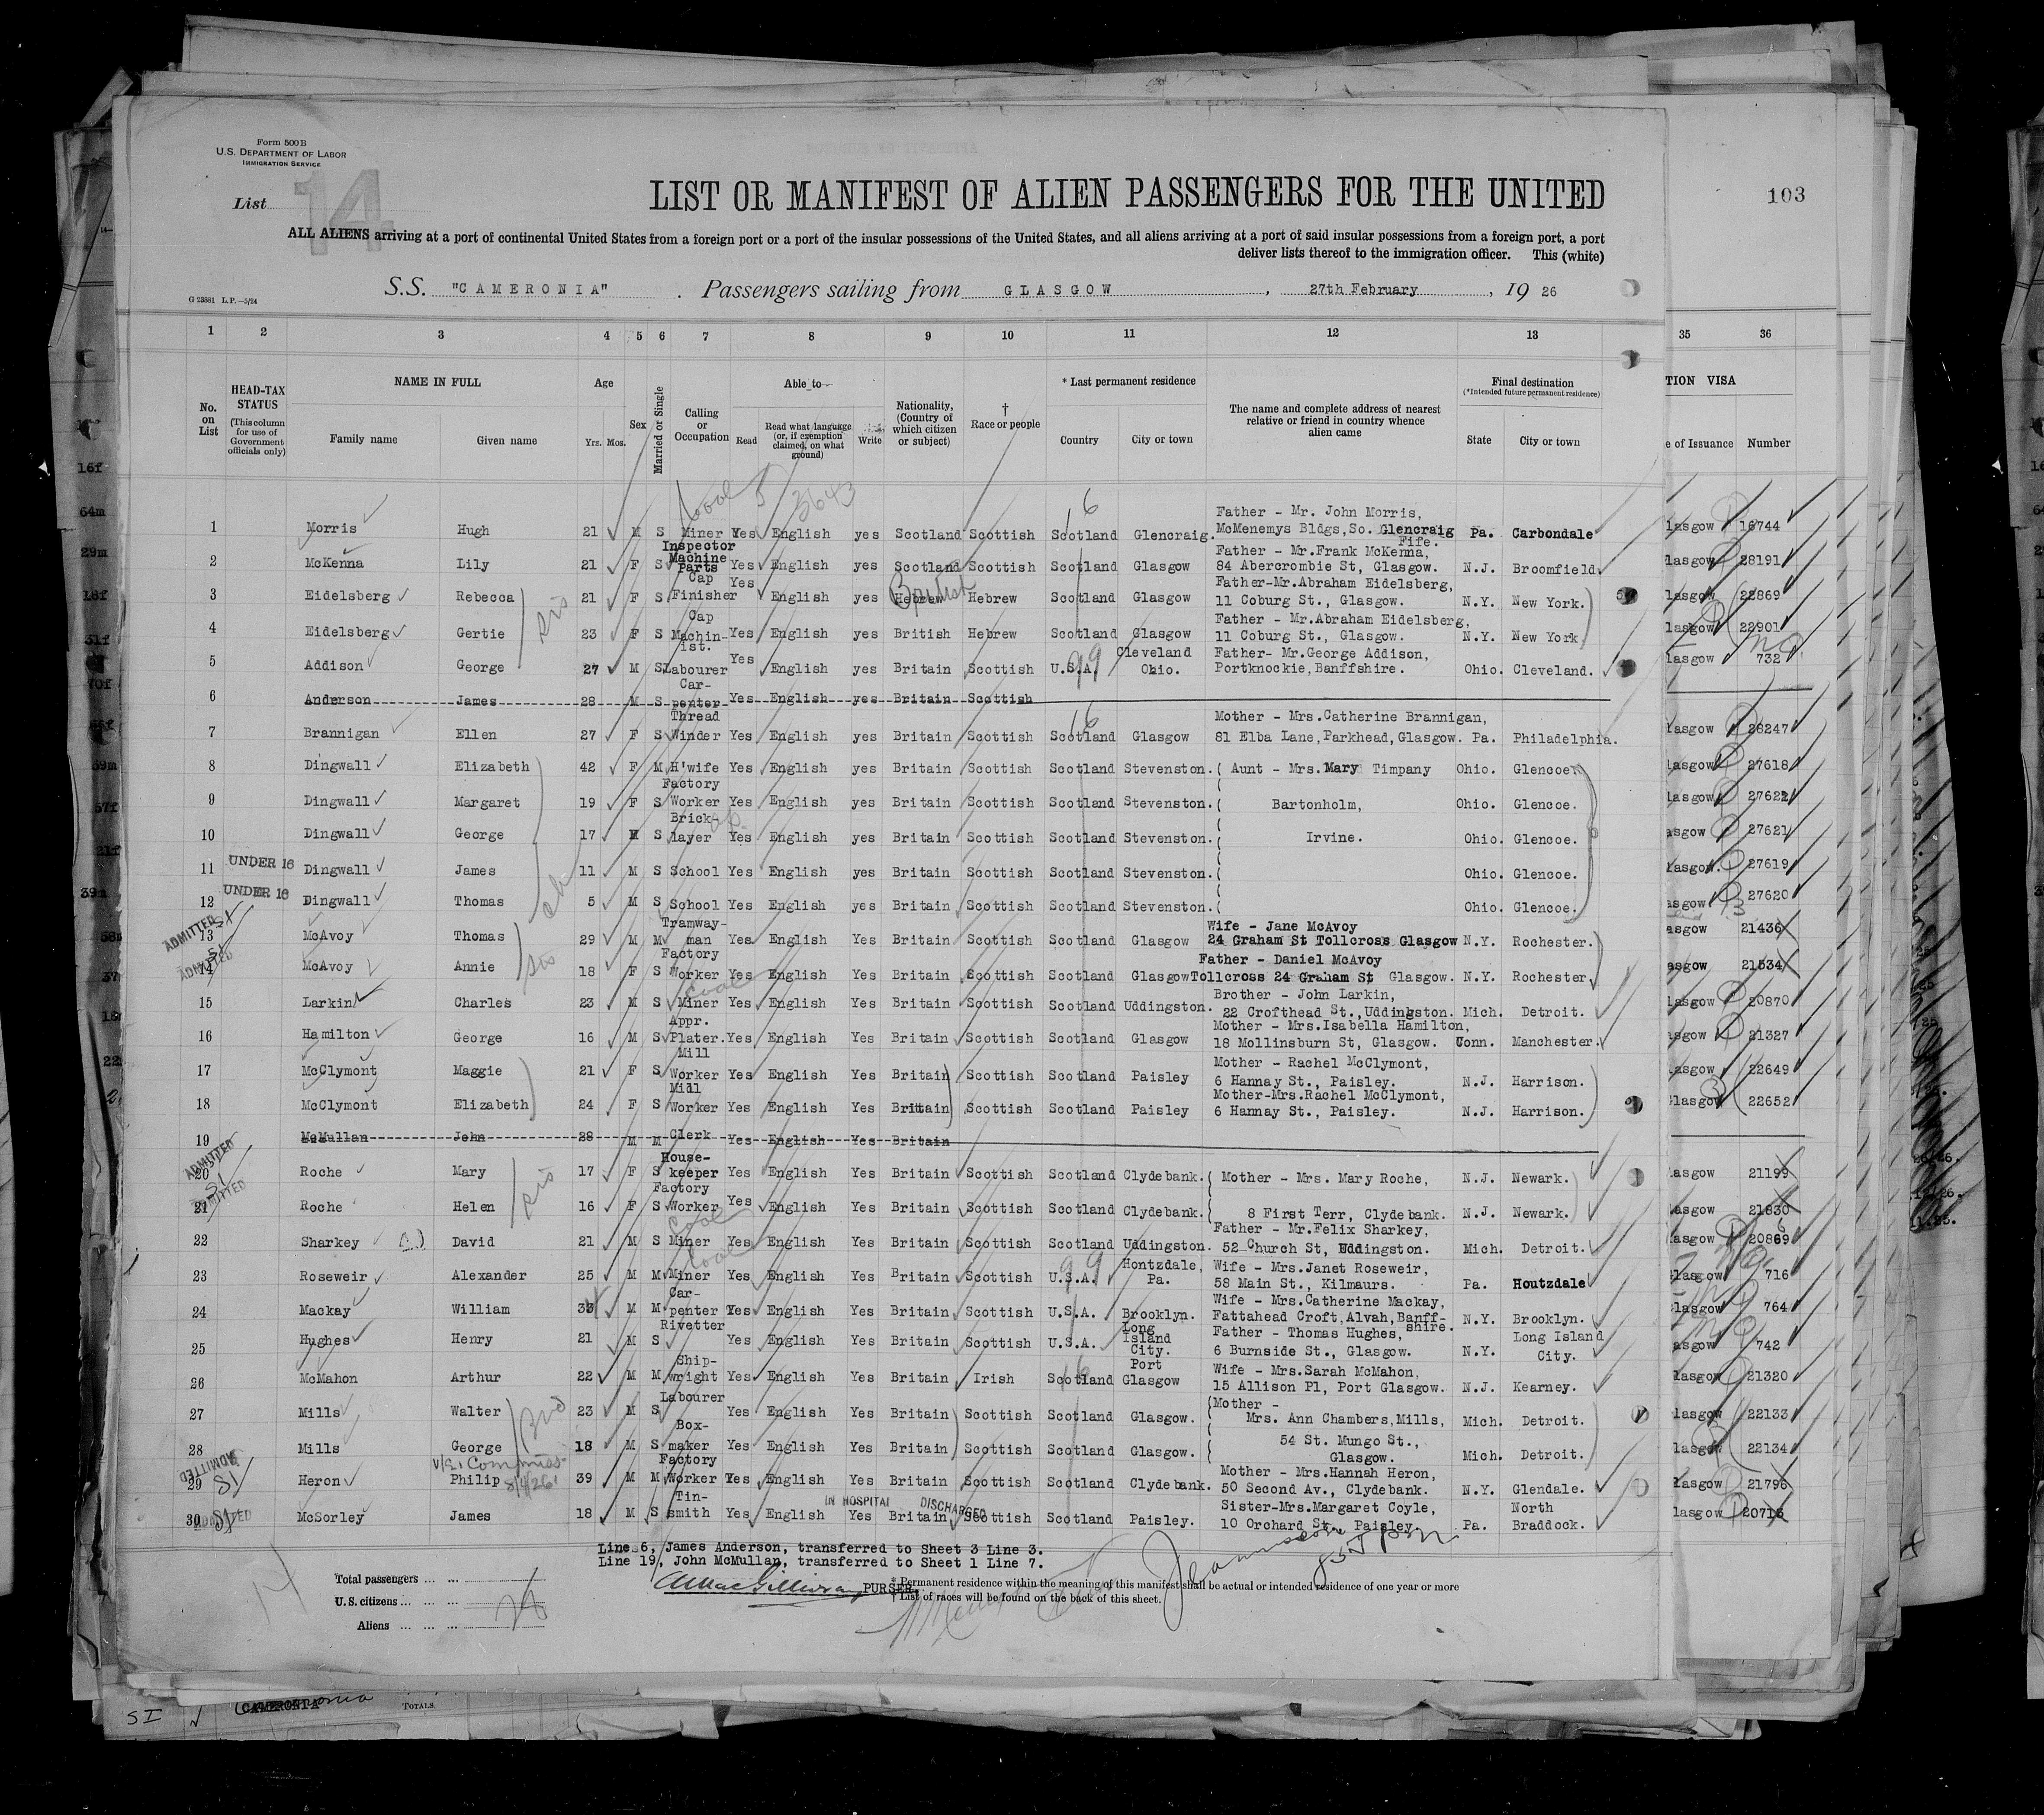 Form 500 B
U.S. DEPARTMENT OF LABOR
IMMIGRATION SERVICE
List 14
LIST OR MANIFEST OF ALIEN PASSENGERS FOR THE UNITED
103
ALL ALIENS arriving at a port of continental United States from a foreign port or a port of the insular possessions of the United States, and all aliens arriving at a port of said insular possessions from a foreign port, a port
deliver lists thereof to the immigration officer. This (white)
G 23881 L.P.—5/24
S.S. "CAMERONIA" . Passengers sailing from GLASGOW , 27th February , 19 26
1 2 3 4 5 6 7 8 9 10 11 12 13 35 36
No. on List
HEAD-TAX STATUS (This column for use of Government officials only)
NAME IN FULL Family name Given name
Age Yrs. Mos.
Sex
Married or Single
Calling or Occupation
Able to Read Read what language (or, if exemption claimed, on what ground) Write
Nationality, (Country of which citizen or subject)
† Race or people
* Last permanent residence Country City or town
The name and complete address of nearest relative or friend in country whence alien came
Final destination (*Intended future permanent residence) State City or town
TION VISA e of Issuance Number
1 Morris Hugh 21 M S Coal Miner Yes English yes Scotland Scottish Scotland Glencraig. Father - Mr. John Morris, McMenemys Bldgs, So. Glencraig Fife. Pa. Carbondale lasgow 16744
2 McKenna Lily 21 F S Inspector Machine Parts Yes English yes Scotland Scottish Scotland Glasgow Father - Mr.Frank McKenna, 84 Abercrombie St, Glasgow. N.J. Broomfield. lasgow 28191
3 Eidelsberg Rebecca 21 F S Cap Finisher Yes English yes Hebrew British Hebrew Scotland Glasgow Father-Mr.Abraham Eidelsberg, 11 Coburg St., Glasgow. N.Y. New York. lasgow 22869
4 Eidelsberg Gertie sis 23 F S Cap Machin-ist. Yes English yes British Hebrew Scotland Glasgow Father - Mr.Abraham Eidelsberg, 11 Coburg St., Glasgow. N.Y. New York. lasgow 22901
5 Addison George 27 M S Labourer Yes English yes Britain Scottish U.S.A. Cleveland Ohio. Father- Mr.George Addison, Portknockie, Banffshire. Ohio. Cleveland. lasgow 732
6 Anderson James 28 M S Car-penter Yes English yes Britain Scottish
7 Brannigan Ellen 27 F S Thread Winder Yes English yes Britain Scottish Scotland Glasgow Mother - Mrs.Catherine Brannigan, 81 Elba Lane, Parkhead, Glasgow. Pa. Philadelphia. lasgow 28247
8 Dingwall Elizabeth 42 F M H'wife Yes English yes Britain Scottish Scotland Stevenston. ( Aunt - Mrs. Mary Timpany Ohio. Glencoe. lasgow 27618
9 Dingwall Margaret 19 F S Factory Worker Yes English yes Britain Scottish Scotland Stevenston. ( Bartonholm, Ohio. Glencoe. lasgow 27622
10 Dingwall George 17 M S Brick-layer Yes English yes Britain Scottish Scotland Stevenston. ( Irvine. Ohio. Glencoe. asgow 27621
11 UNDER 16 Dingwall James 11 M S School Yes English yes Britain Scottish Scotland Stevenston. ( Ohio. Glencoe. lasgow. 27619
12 UNDER 16 Dingwall Thomas ch 5 M S School Yes English yes Britain Scottish Scotland Stevenston. ( Ohio. Glencoe. asgow 27620
ADMITTED SI 13 McAvoy Thomas 29 M M Tramway-man Yes English Yes Britain Scottish Scotland Glasgow Wife - Jane McAvoy 24 Graham St Tollcross Glasgow N.Y. Rochester. asgow 21436
ADMITTED SI 14 McAvoy Annie sis 18 F S Factory Worker Yes English Yes Britain Scottish Scotland Glasgow Father - Daniel McAvoy Tollcross 24 Graham St Glasgow. N.Y. Rochester asgow 21534
15 Larkin Charles 23 M S Coal Miner Yes English Yes Britain Scottish Scotland Uddingston. Brother - John Larkin, 22 Crofthead St., Uddingston. Mich. Detroit. lasgow 20870
16 Hamilton George 16 M S Appr. Plater. Yes English Yes Britain Scottish Scotland Glasgow Mother - Mrs.Isabella Hamilton, 18 Mollinsburn St, Glasgow. Conn. Manchester. asgow 21327
17 McClymont Maggie 21 F S Mill Worker Yes English Yes Britain Scottish Scotland Paisley Mother - Rachel McClymont, 6 Hannay St., Paisley. N.J. Harrison. lasgow 22649
18 McClymont Elizabeth 24 F S Mill Worker Yes English Yes Britain Scottish Scotland Paisley Mother-Mrs.Rachel McClymont, 6 Hannay St., Paisley. N.J. Harrison. Glasgow 22652
19 McMullan John 28 M M Clerk Yes English Yes Britain
ADMITTED SI 20 Roche Mary 17 F S House-keeper Yes English Yes Britain Scottish Scotland Clydebank. ( Mother - Mrs. Mary Roche, N.J. Newark. lasgow 21199
ADMITTED SI 21 Roche Helen sis 16 F S Factory Worker Yes English Yes Britain Scottish Scotland Clydebank. ( 8 First Terr, Clydebank. N.J. Newark. lasgow 21830
22 Sharkey David 21 M S Coal Miner Yes English Yes Britain Scottish Scotland Uddingston. Father - Mr.Felix Sharkey, 52 Church St, Uddingston. Mich. Detroit. lasgow 20869
23 Roseweir Alexander 25 M M Coal Miner Yes English Yes Britain Scottish U.S.A. Hontzdale, Pa. Wife - Mrs.Janet Roseweir, 58 Main St., Kilmaurs. Pa. Houtzdale Glasgow 716
24 Mackay William 33 M M Car-penter Yes English Yes Britain Scottish U.S.A. Brooklyn. Wife - Mrs.Catherine Mackay, Fattahead Croft, Alvah, Banff-shire. N.Y. Brooklyn. Glasgow 764
25 Hughes Henry 21 M S Rivetter Yes English Yes Britain Scottish U.S.A. Long Island City. Father - Thomas Hughes, 6 Burnside St., Glasgow. N.Y. Long Island City. asgow 742
26 McMahon Arthur 22 M M Ship-wright Yes English Yes Britain Irish Scotland Port Glasgow Wife - Mrs.Sarah McMahon, 15 Allison Pl, Port Glasgow. N.J. Kearney. lasgow 21320
27 Mills Walter 23 M S Labourer Yes English Yes Britain Scottish Scotland Glasgow. (Mother - Mrs. Ann Chambers, Mills, Mich. Detroit. lasgow 22133
28 Mills George 18 M S Box-maker Yes English Yes Britain Scottish Scotland Glasgow. ( 54 St. Mungo St., Glasgow. Mich. Detroit. lasgow 22134
ADMITTED SI 29 Heron Philip 39 M M Factory Worker Yes English Yes Britain Scottish Scotland Clydebank. Mother - Mrs.Hannah Heron, 50 Second Av., Clydebank. N.Y. Glendale. lasgow 21796
ADMITTED SI 30 McSorley James 18 M S Tin-smith Yes English Yes Britain Scottish Scotland Paisley. Sister-Mrs.Margaret Coyle, 10 Orchard St, Paisley. Pa. North Braddock. lasgow 20716
IN HOSPITAL DISCHARGED
Line 6, James Anderson, transferred to Sheet 3 Line 3.
Line 19, John McMullan, transferred to Sheet 1 Line 7.
PURSER.
Total passengers
U.S. citizens
Aliens
* Permanent residence within the meaning of this manifest shall be actual or intended residence of one year or more
† List of races will be found on the back of this sheet.
SI CAMERONIA TOTALS